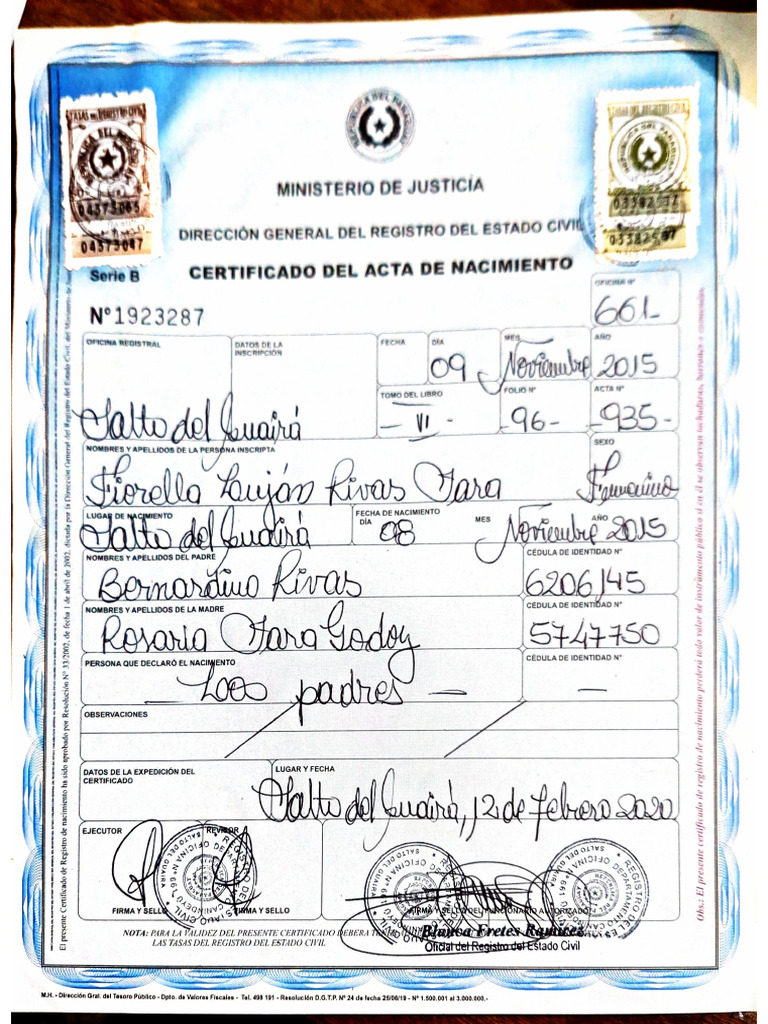 TASAS DEL REGISTRO CIVIL
REPUBLICA DEL PARAGUAY
04573047
REPUBLICA DEL PARAGUAY
TASAS DEL REGISTRO CIVIL
REPUBLICA DEL PARAGUAY
MINISTERIO DE JUSTICIA
DIRECCIÓN GENERAL DEL REGISTRO DEL ESTADO CIVIL
Serie B
CERTIFICADO DEL ACTA DE NACIMIENTO
Nº 1923287
OFICINA Nº
661-
OFICINA REGISTRAL
DATOS DE LA INSCRIPCIÓN
FECHA
DÍA
09
MES
Noviembre
AÑO
2015
Salto del Guairá
TOMO DEL LIBRO
- VI -
FOLIO Nº
-96-
ACTA Nº
-935-
NOMBRES Y APELLIDOS DE LA PERSONA INSCRIPTA
Fiorella Luján Rivas Jara
SEXO
Femenino
LUGAR DE NACIMIENTO
Salto del Guairá
FECHA DE NACIMIENTO
DÍA
08
MES
Noviembre
AÑO
2015
NOMBRES Y APELLIDOS DEL PADRE
Bernardino Rivas
CÉDULA DE IDENTIDAD Nº
6206145
NOMBRES Y APELLIDOS DE LA MADRE
Rosaria Jara Godoy
CÉDULA DE IDENTIDAD Nº
5747750
PERSONA QUE DECLARÓ EL NACIMIENTO
Loos padres —
CÉDULA DE IDENTIDAD Nº
—
OBSERVACIONES
DATOS DE LA EXPEDICIÓN DEL
CERTIFICADO
LUGAR Y FECHA
Salto del Guairá, 12 de Febrero 2020
EJECUTOR
REVISOR
FIRMA Y SELLO
FIRMA Y SELLO
FIRMA Y SELLO DEL FUNCIONARIO AUTORIZADO
Blanca Fretes Ramírez
Oficial del Registro del Estado Civil
NOTA: PARA LA VALIDEZ DEL PRESENTE CERTIFICADO DEBERA
LAS TASAS DEL REGISTRO DEL ESTADO CIVIL
M.H. - Dirección Gral. del Tesoro Público - Dpto. de Valores Fiscales - Tel. 498 191 - Resolución D.G.T.P. Nº 24 de fecha 25/06/19 - Nº 1.500.001 al 3.000.000.-
El presente Certificado de Registro de nacimiento ha sido aprobado por Resolución Nº 33/2002, de fecha 1 de abril de 2002, dictada por la Dirección General del Registro del Estado Civil, del Ministerio de
Obs.: El presente certificado de registro de nacimiento perderá todo valor de instrumento público si en él se observan tachaduras, borrones o enmiendas.